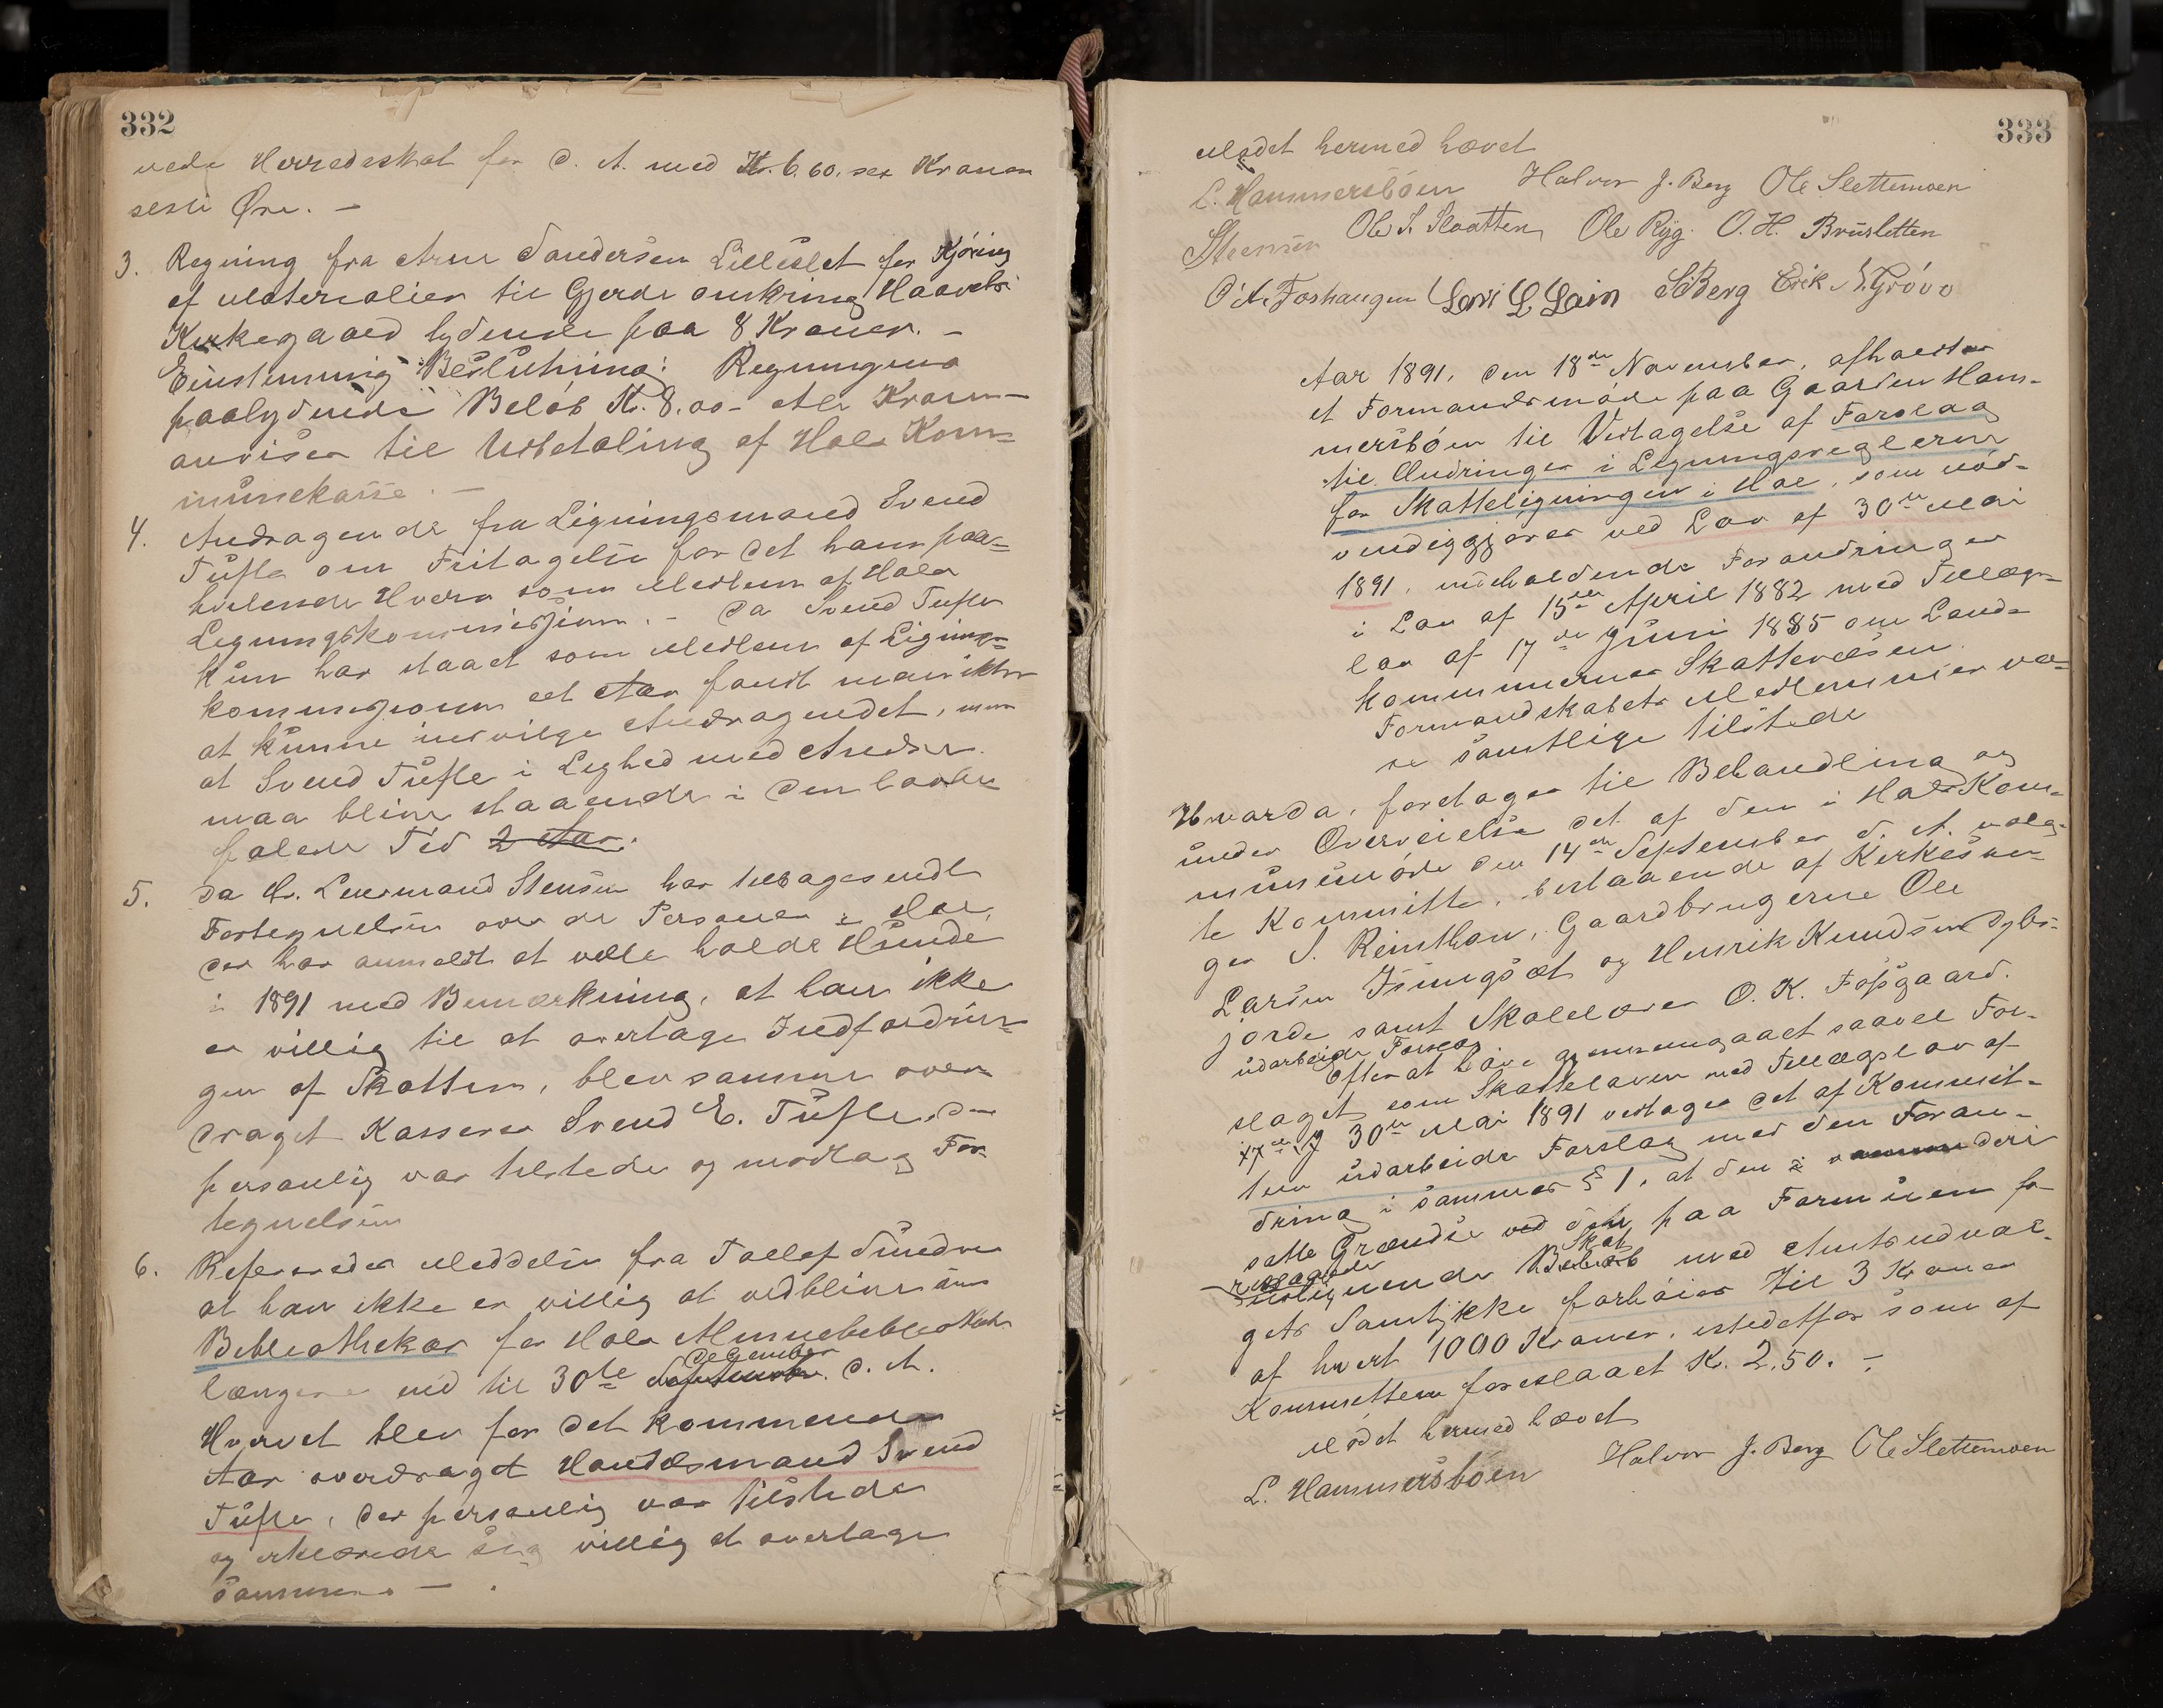 332
vede Herredsskat for d. A. med Kr. 6.60. sex Kroner
seksti Øre. —
3. Regning fra Arne Sandersen Lilleslet for Kjøring
af Materialier til Gjerde omkring Haavels
Kirkegaard lydende paa 8 Kroner. —
Eenstemmig Beslutning: Regningens
paalydende Beløb Kr. 8.00 - otte Kroner —
anvises til Udbetaling af Hols Kom=
munekasse. —
4. Andragende fra Ligningsmand Svend
Tufte om Fritagelse for det ham paa=
hvilende Hverv som Medlem af Hols
Ligningskommission. - Da Svend Tufte
kun har staaet som Medlem af Lignings=
kommissionen et Aar fandt man ikke
at kunne indvilge Andragendet, men
at Svend Tufte i Lighed med Andre
maa blive staaende i den lovbe
falede Tid 2 Aar.
5. Da Hr. Lensmand Stensen har tilbagesendt
Fortegnelsen over de Personer i Hol,
der har anmeldt at ville holde Hunde
i 1891 med Bemærkning, at han ikke
er villig til at overtage Indfordrin=
gen af Skatten, blev samme over=
draget Kasserer Svend E. Tufte, der
personlig var tilstede og modtog For=
tegnelsen
6. Refereredes Meddelse fra Tollef Smedre
at han ikke er villig at vedblive som
Bibliothekar for Hols Almuebibliothek
længere end til 30te December d. A.
Hvervet blev for det kommende
Aar overdraget Handelsmand Svend
Tufte, der personlig var tilstede
og erklærede sig villig at overtage
samme. —
333
Mødet hermed hævet
L. Hammersbøen Halvor J. Berg Ole Slettemoen
Stensen Ole S. Slaatten Ole Ryg. O. H. Brusletten
O A. Foshaugen Levi L. Lein S Berg Erik N. Grøvo
Aar 1891, den 18de November, afholdtes
et Formandsmøde paa Gaarden Ham-
mersbøen til Vedtagelse af Forslag
til Ændringer i Ligningsreglerne
for Skatteligningen i Hol, som nød-
vendiggjøres ved Lov af 30te Mai
1891, indeholdende Forandringer
i Lov af 15de April 1882 med Tillægs-
lov af 17de Juni 1885 om Land-
kommunernes Skattevæsen.
Formandskabets Medlemmer va=
re samtlige tilstede
Hvorda, foretages til Behandling og
under Overveielse det af den i Hols Kom-
munemøde den 14de September d. A. valg-
te Kommitte, bestaaende af Kirkesan-
ger S. Reinton, Gaardbrugerne Ole
Larsen Isungset og Henrik Knudsen Sybe-
jorde samt Skolelærer O. K. Fosgaard.
udarbeide Forslag
Efter at have gjennemgaaet saavel For-
slaget som Skatteloven med Tillægslov af
17de og 30te Mai 1891 vedtages det af Kommit-
teen udarbeide Forslag med den Foran-
dring i sammes § 1, at den i samme deri
satte Grændse ved paa Formuen fa
udlignende Skat med Amtsudval-
gets Samtykke forhøies til 3 Kroner
af hvert 1000 Kroner. istedetfor som af
Kommitteen foreslaaet Kr. 2,50. —
Mødet hermed hævet
L. Hammersbøen Halvor J. Berg Ole Slettemoen